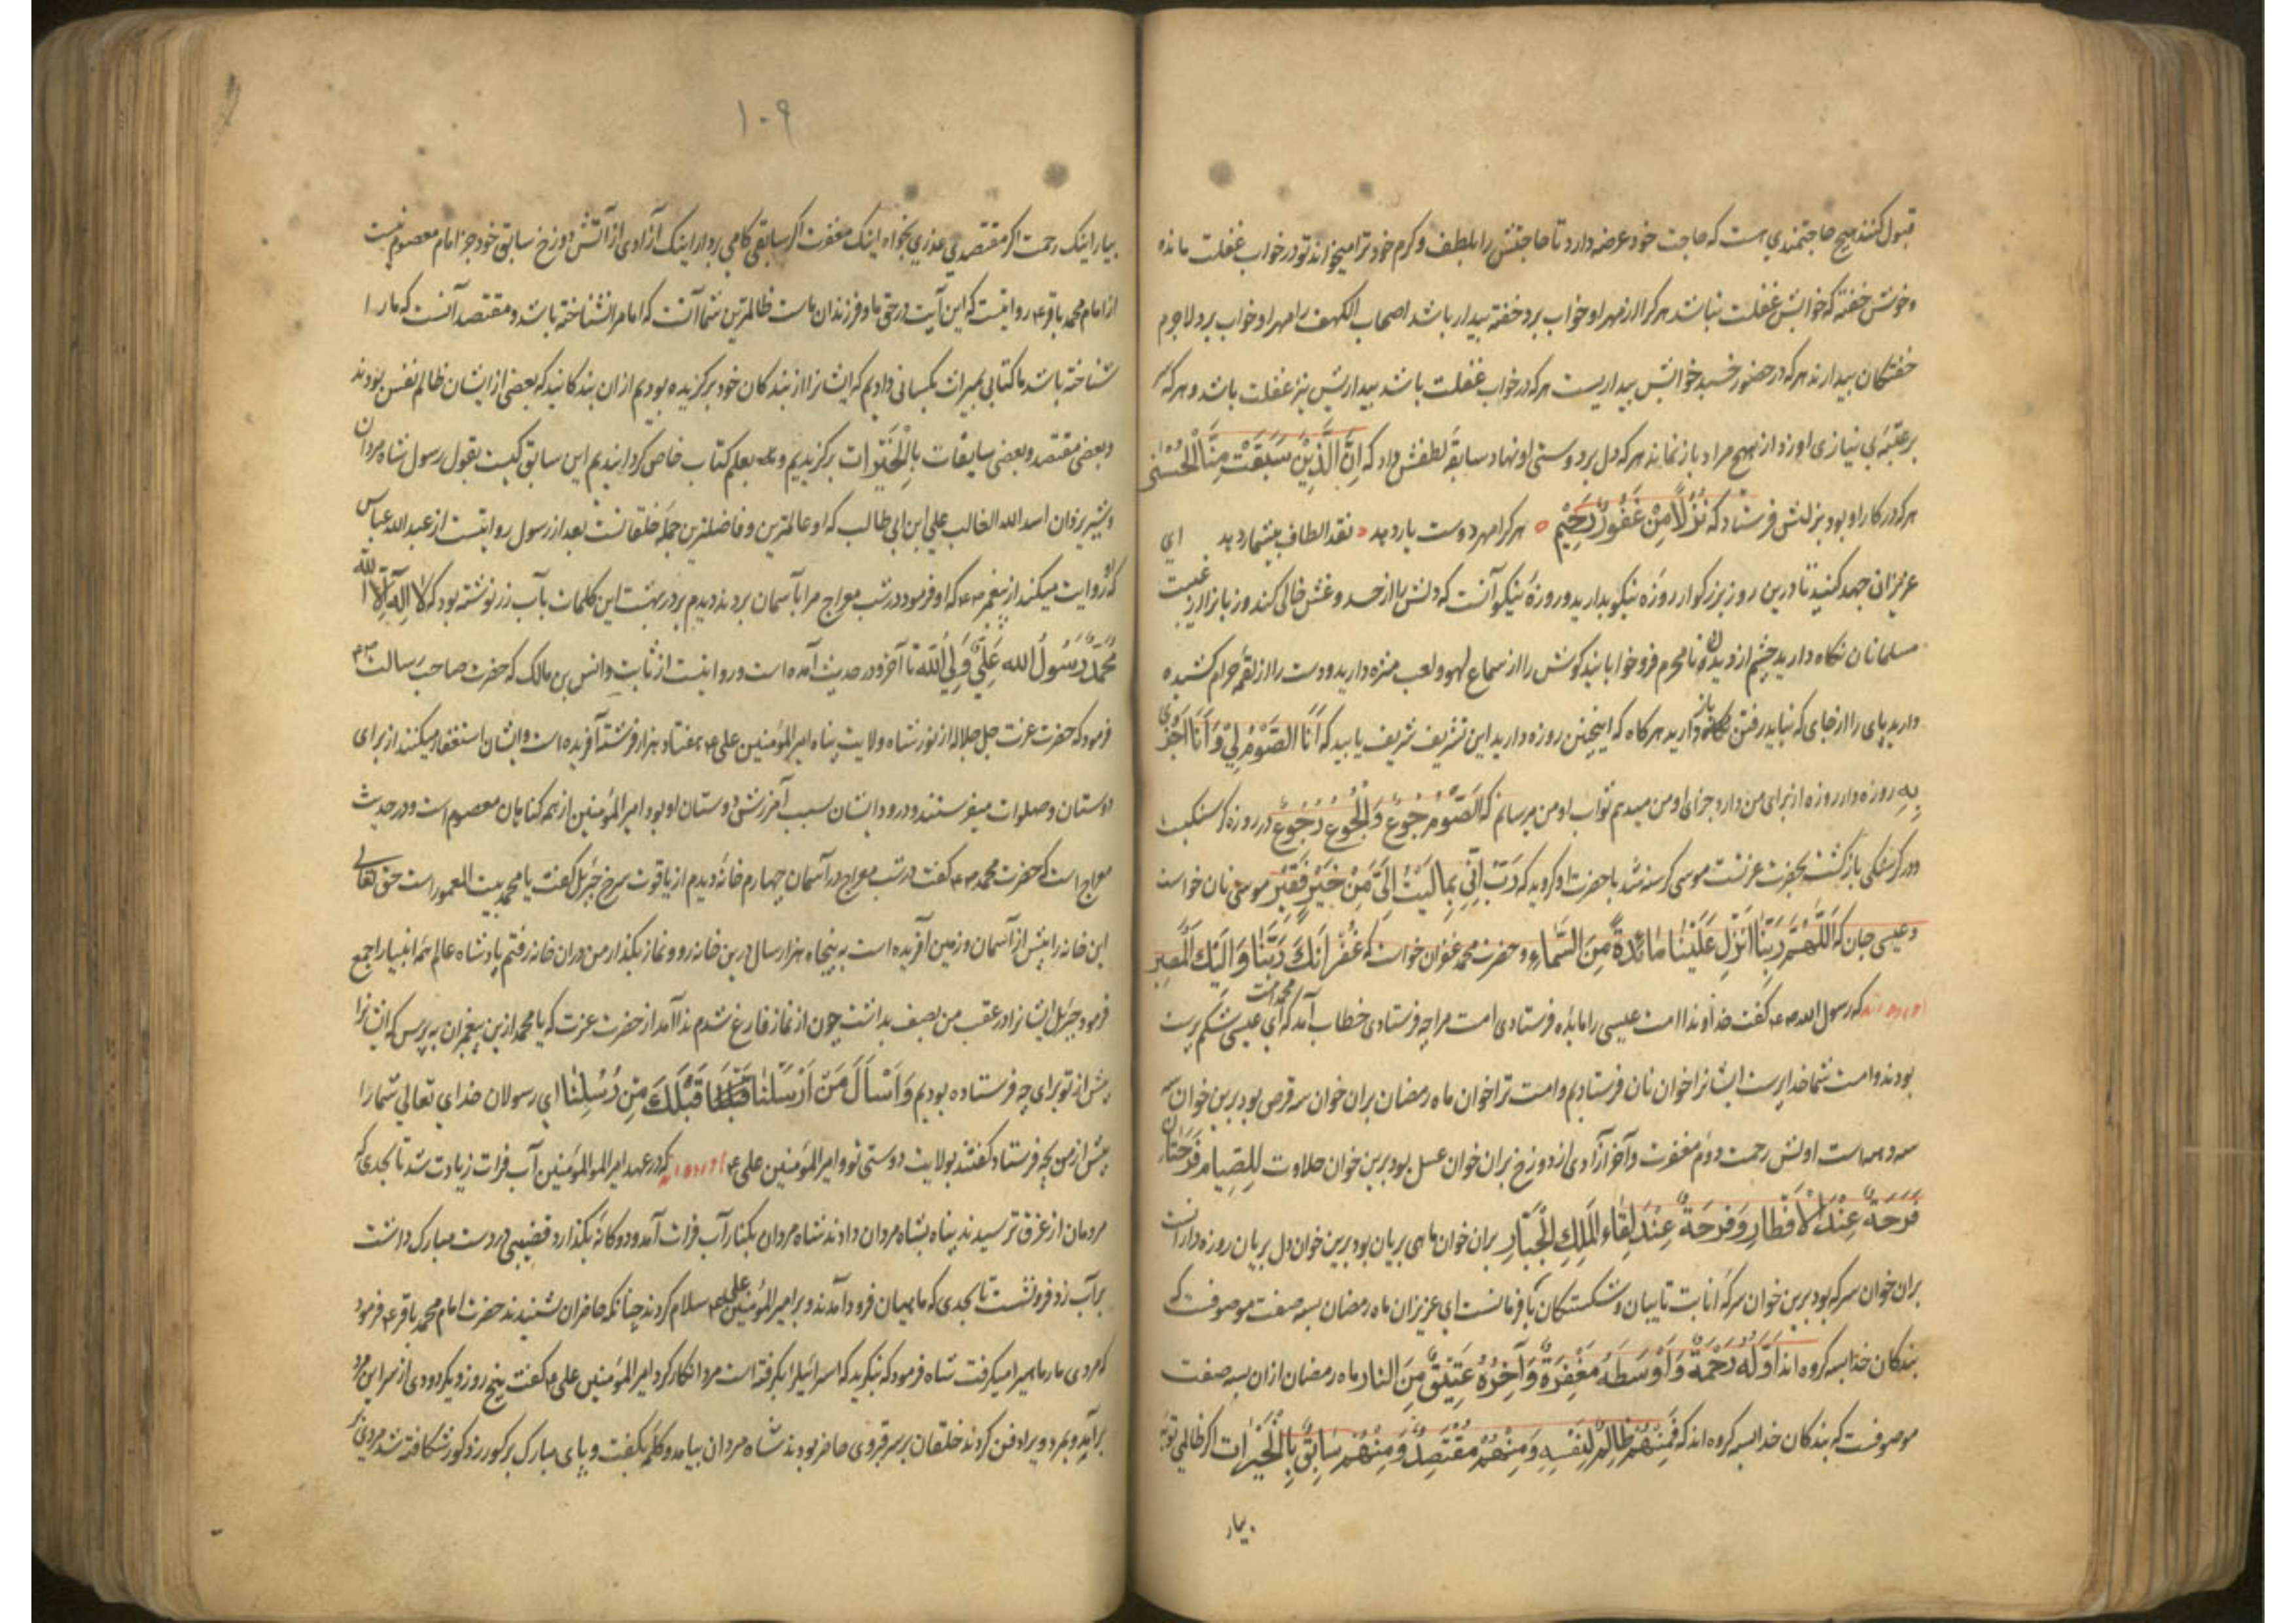 قبول کنند هیچ حاجتمندی است که حاجت خود عرضه دارد تا حاجتش را بلطف و کرم خود ترا میخواند تو در خواب غفلت مانده
و خوش خفته که خوابش غفلت نباشد هر کرا از مهر او خواب برد خفته بیدار باشد اصحاب الکهف را مهر او خواب برد لاجرم
خفتگان بیدارند هر که در حضور خسبد خوابش بیداریست هر که در خواب غفلت باشد بیداریش نیز غفلت باشد و هر که
بر عتبهٔ بی نیازی او زد از هیچ مراد باز نماند هر که دل بر دوستی او نهاد سابقهٔ لطفش داد که اِنَّ الَّذِیْنَ سَبَقَتْ مِنَّا الْحُسْنٰی
هر که در کار او بود بزلش فرستاد که نُزُلاً مِنْ غَفُوْرٍ رَحِیْمٍ هر کرا مهر دوست یار دهد نقد الطاف بیشمار دهد ای
عزیزان جهد کنید تا درین روز بزرکوار روزه نیکو بدارید و روزهٔ نیکو آنست که دلش را از حسد و غش خالی کند و زبانرا از غیبت
مسلمانان نگاه دارید چشم از دیدن نامحرم فرو خوابانید کوش را از سماع لهو و لعب منزه دارید و دست را از لقمهٔ حرام کشیده
دارید پای را از جای که نباید رفتن باز دارید هر کاه که اینچنین روزه دارید این تشریف شریف یابید که اَنَا الصَّوْمُ لِیْ وَ اَنَا اَجْزِیْ
بِهِ روزه دار روزه از برای من دارد جزای او من میدهم ثواب او من میرسانم که اَلصَّوْمُ جُوْعٌ وَ الْجُوْعُ رُجُوْعٌ در روزه کرسنکیست
و در کرسنکی بازکشت بحضرت عزتست موسی کرسنه شد با حضرت او کروید که رَبِّ اِنِّی بِمَا لَیْتَ اِلَیَّ مِنْ خَیْرٍ فَقِیْر موسی نان خواست
و عیسی جان که اَللّٰهُمَّ رَبَّنَا اَنْزِلْ عَلَیْنَا مَائِدَةً مِنَ السَّمَاءِ و حضرت محمد غفران خواست که غُفْرَانَکَ رَبَّنَا وَ اِلَیْکَ الْمَصِیْر
آورده اند که رسول الله ص ع کفت خداوندا امت عیسی را مایده فرستادی امت مرا چه فرستادی خطاب آمد که ای محمد امت عیسی شکم پرست
بودند و امت شما خداپرست ایشانرا خوان نان فرستادیم و امت ترا خوان ماه رمضان بران خوان سه قرص بود برین خوان
سه دهه است اولش رحمت دوم مغفرت و آخر آزادی از دوزخ بران خوان عسل بود برین خوان حلاوت لِلصِّیَامِ فَرْحَتَان
فَرْحَةٌ عِنْدَ الْاَفْطَارِ وَ فَرْحَةٌ عِنْدَ لِقَاءِ الْمَلِکِ الْجَبَّارِ بران خوان ماهی بریان بود برین خوان دل بریان روزه دارانست
بران خوان سرکه بود برین خوان سرکهٔ انابت تایبان و شکستکان نافرمانست ای عزیزان ماه رمضان بسه صفت موصوفست که
بندکان خدا سه کروه اند اَوَّلُهُ رَحْمَةٌ وَ اَوْسَطَهُ مَغْفِرَةٌ وَ آخِرُهُ عَتِیْقٌ مِنَ النار ماه رمضان ازان بسه صفت
موصوفست که بندکان خدا بسه کروه اند که فَمِنْهُمْ ظَالِمٌ لِنَفْسِهِ وَ مِنْهُمْ مُقْتَصِدٌ وَ مِنْهُمْ سَابِقٌ بِالْخَیْرَات اکر ظالمی توبه
بیار
۱۰۹
بیار اینک رحمت اکر مقتصدی عذری بخواه اینک مغفرت اکر سابقی کامی بردار اینک آزادی از آتش دوزخ سابق خود جز امام معصوم نیست
از امام محمد باقر ع روایتست که این آیت در حق ما و فرزندان ماست ظالمترین شما آنست که امامرا نشناخته باشد و مقتصد آنست که ما را
شناخته باشد ما کتابی بمیراث بکسانی دادیم که ایشانرا از بندکان خود برکزیده بودیم ازان بندکانیکه بعضی از ایشان ظالم نفس بودند
و بعضی مقتصد و بعضی سابقات بِالْخَیْرَات برکزیدیم و بعلم کتاب خاص کردانیدیم این سابق کیست بقول رسول شاه مردان
و شیر یزدان اسد الله الغالب علی ابن ابی طالب که او عالمترین و فاضلترین جملهٔ خلقانست بعد از رسول روایتست از عبد الله عباس
که او روایت میکند از پیغمبر ص ع که او فرمود در شب معراج مرا بآسمان بردند دیدم بر در بهشت این کلمات بآب زر نوشته بود که لَا اِلٰهَ اِلَّا اللّٰه
مُحَمَّدٌ رَسُوْلُ الله عَلِیٌّ وَلِیُّ اللّٰه تا آخر و در حدیث آمده است و روایتست از ثابت و انس بن مالک که حضرت صاحب رسالت ص ع
فرمود که حضرت عزت جل جلاله از نور شاه ولایت پناه امیر المؤمنین علی ع هفتاد هزار فرشته آفریده است و ایشان استغفار میکنند از برای
دوستان و صلوات میفرستند و درود ایشان سبب آمرزش دوستان او بود امیر المؤمنین از همه کناهان معصوم است و در حدیث
معراج است که حضرت محمد ص ع کفت در شب معراج در آسمان چهارم خانه دیدم از یاقوت سرخ جبرئیل کفت یا محمد بیت المعمور است حق تعالی
این خانه را پیش از آسمان و زمین آفریده است به پنجاه هزار سال درین خانه رو و نماز بکذار من دران خانه رفتم پادشاه عالم همه انبیا را جمع
فرمود جبرئیل ایشانرا در عقب من بصف بداشت چون از نماز فارغ شدم ندا آمد از حضرت عزت که یا محمد ازین پیغمبران بپرس که ایشانرا
پیش از تو برای چه فرستاده بودیم وَ اسْأَلَ مَنْ اَرْسَلْنَا قَبْلَکَ مِنْ رُسُلِنَا ای رسولان خدای تعالی شما را
پیش از من بچه فرستاد کفتند بولایت دوستی تو و امیر المؤمنین علی ع آورده اند که در عهد امیر المو المؤمنین آب فرات زیادت شد تا بحدی که
مردمان از غرق ترسیدند پناه بشاه مردان دادند شاه مردان بکنار آب فرات آمد و دوکانه بکذارد قضیبی در دست مبارک داشت
بر آب زد فرو نشست تا بحدی که ماهیان فرود آمدند و بر امیر المؤمنین علی ع سلام کردند چنانکه حاضران بشنیدند حضرت امام محمد باقر ع فرمود
که مردی مارماهیرا میکرفت شاه فرمود که بنکرید که اسرائیلرا بکرفته است مرد انکار کرد امیر المؤمنین علی ع کفت پنج روز دیکر دودی از سر این مرد
برآید و بمرد ویرا دفن کردند خلقان بر سر قبر وی حاضر بودند شاه مردان بیامد و کلمه بکفت و پای مبارک بر کور زد کور شکافته شد مردی